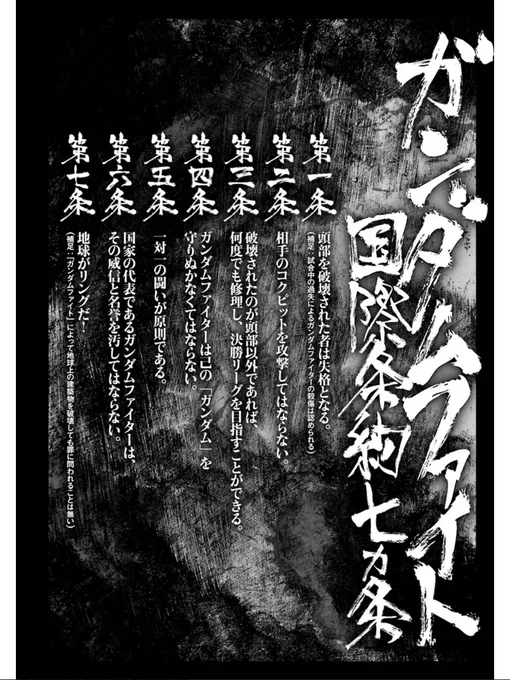 ガンダムファイト
国際条約七カ条
第一条
頭部を破壊された者は失格となる。
(補足：試合中の過失によるガンダムファイターの殺傷は認められる)
第二条
相手のコクピットを攻撃してはならない。
第三条
破壊されたのが頭部以外であれば、
何度でも修理し、決勝リーグを目指すことができる。
第四条
ガンダムファイターは己の「ガンダム」を
守りぬかなくてはならない。
第五条
一対一の闘いが原則である。
第六条
国家の代表であるガンダムファイターは、
その威信と名誉を汚してはならない。
第七条
地球がリングだ！
(補足：「ガンダムファイト」によって地球上の建築物を破壊しても罪に問われることは無い)